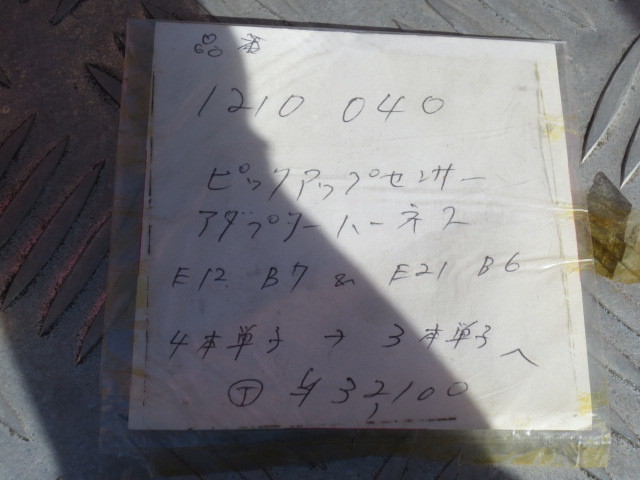 品番
1210 040
ピックアップセンサー
アダプターハーネス
E12 B7 & E21 B6
4本単子 → 3本単子へ
Ⓣ ¥32,100